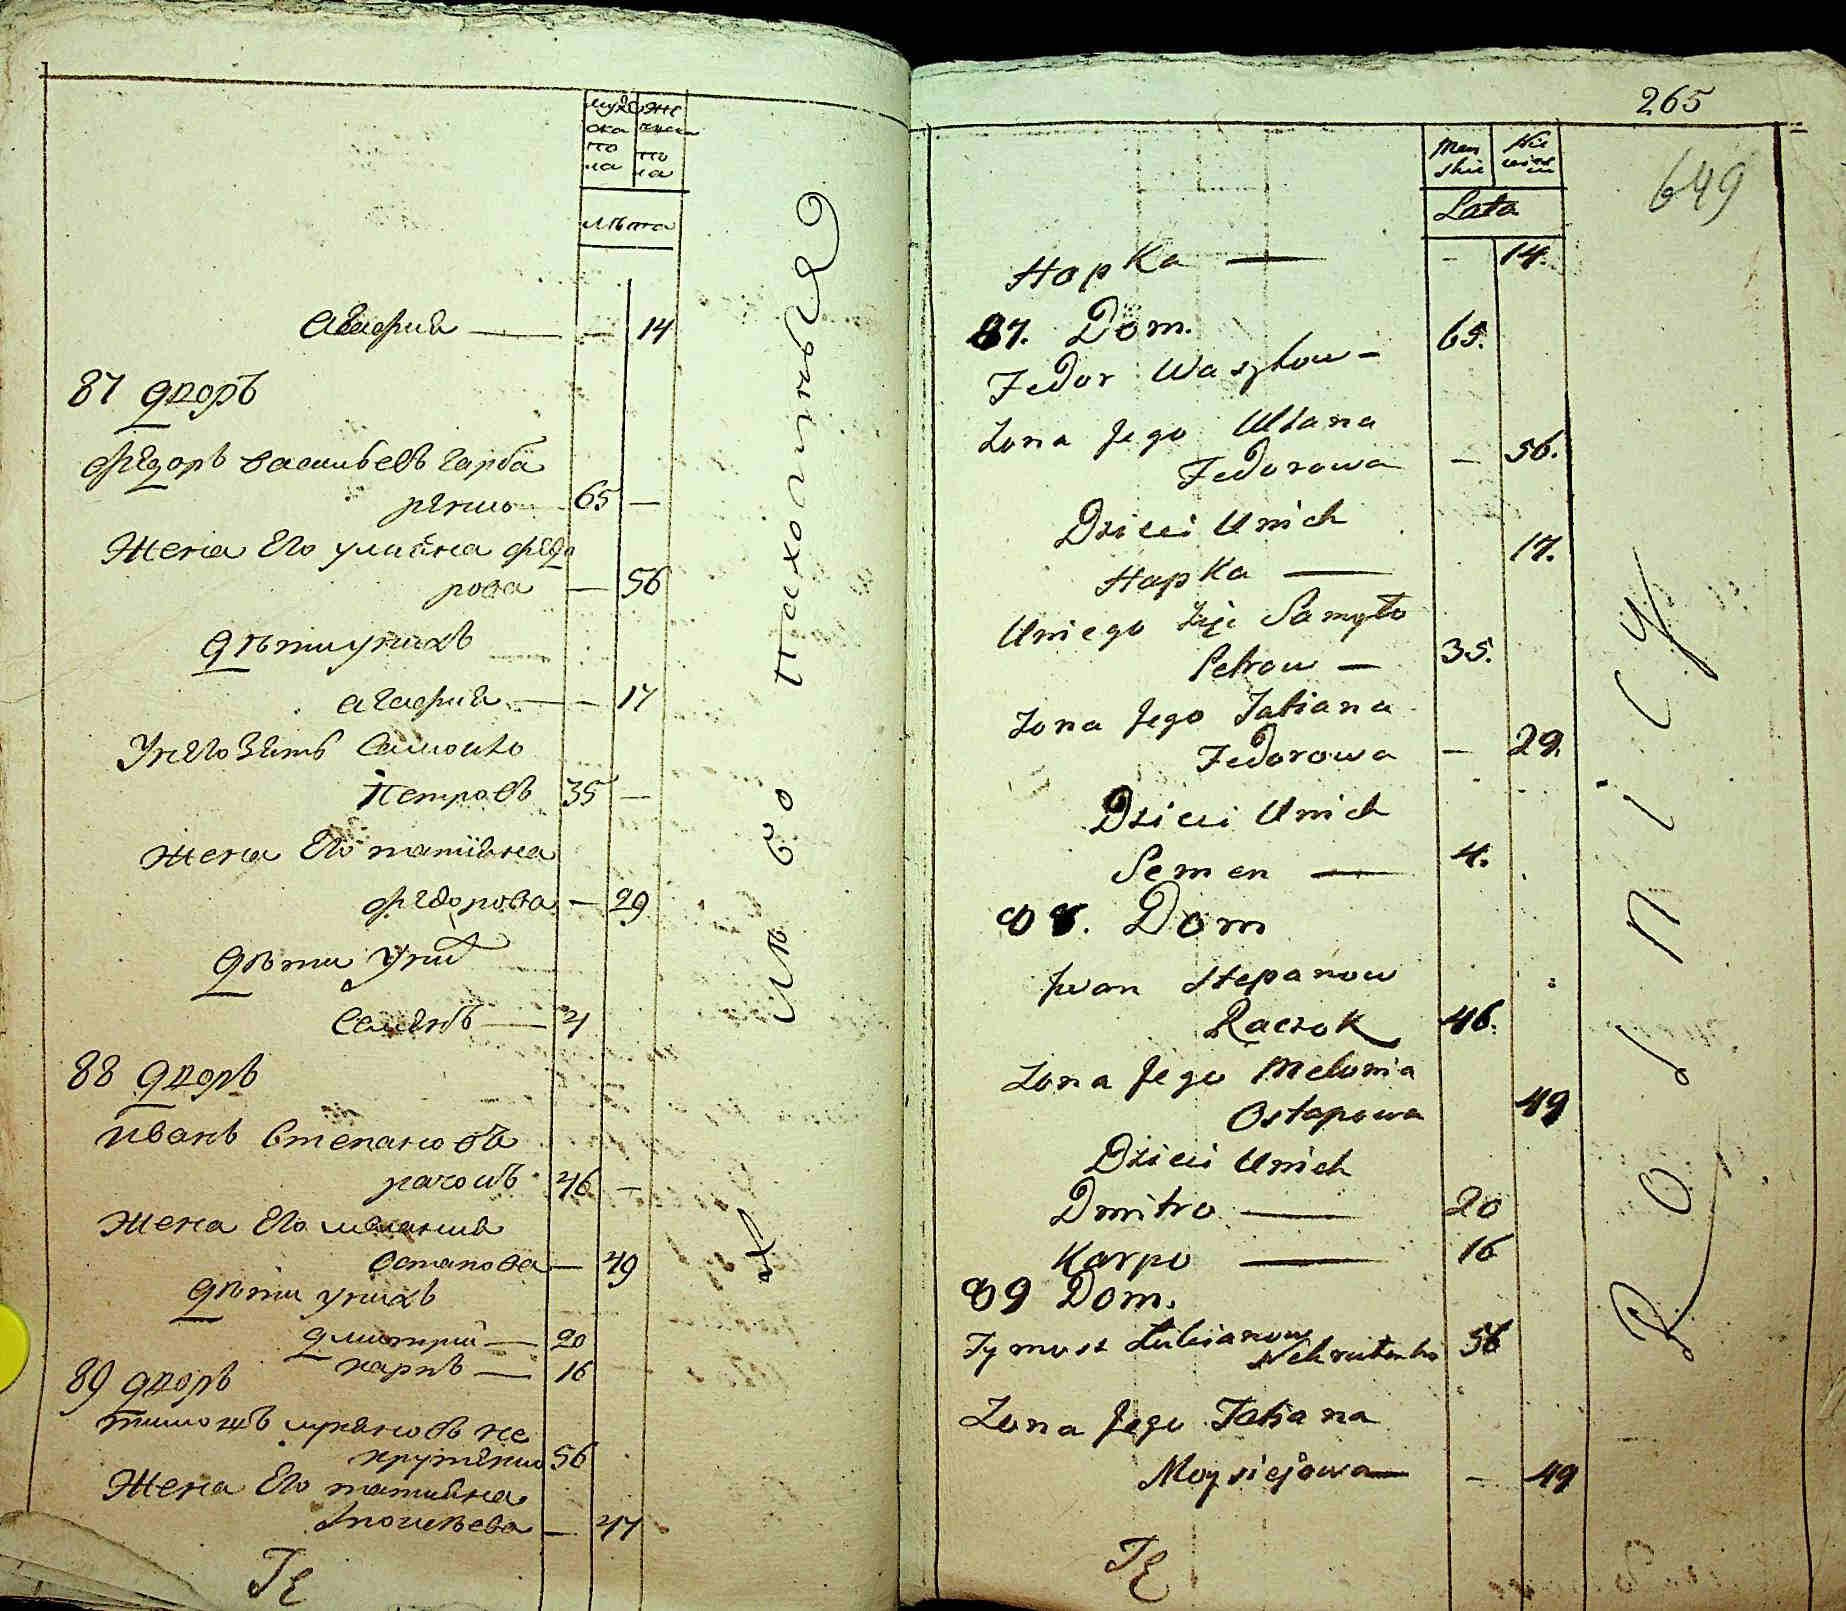 муже
ска
по
ла
же
ска
по
ла
лѣта
Агафиа — — 14
87 дворъ
Федоръ васильевъ гарба
ренко 65 —
Жена Его улиана федо
рова — 56
дѣти унихъ
агафиа — — 17
Унего зять Самоило
Петровъ 35 —
жена Его татиана
федорова — 29
дѣти униx
Семенъ — 4
88 дворъ
иванъ Степановъ
рачокъ 46 —
жена Его мелания
Остапова — 49
дѣти унихъ
дмитрий — 20
карпъ — 16
89 дворъ
тимошъ лукяновъ не
крутенко 56
жена Его татиана
моисѣева — 47
ТЕ
265
649
Męz
skie
Lata
Hapka — - 14.
87. Dom.
Fedor Wasylow — 65.
Zona Jego Ulana
Fedorowa — 56.
Dzieci Unich
Hapka — 17.
Uniego Zięć Samoyło
Petrow — 35.
Zona Jego Tatiana
Fedorowa — 29.
Dzieci Unich
Semen — 4.
88. Dom
Jwan Stepanow
Raczok 46.
Zona Jego Melania
Ostapowa 49
Dzieci Unich
Dmitro — 20
Karpo — 16
89 Dom.
Tymosz Łukianow
Nekrutenko 56
Zona Jego Tatiana
Moysiejowa — - 49
ТЕ